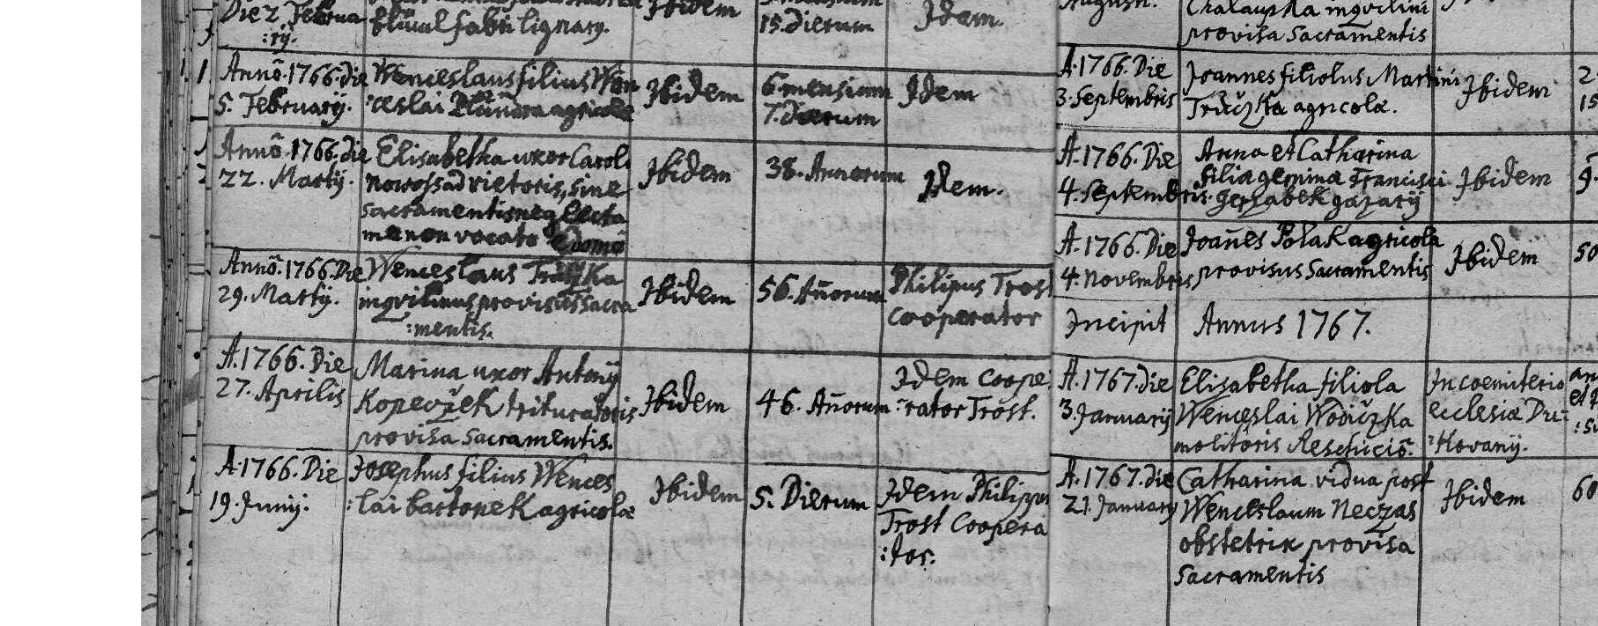 Die 2. Februa
:rij.
fabri lignarij.
Ibidem
15. Dierum
Idem.
Annô. 1766. die
5. Februarij.
Wenceslaus filius Wen
:ceslai agricolæ
Ibidem
6 mensium
7. Dierum
Idem
Annô. 1766. die
22. Martij.
Elisabetha uxor Caroli
sine
Sacramentis neq
me non vocato
Ibidem
38. Annorum
Idem.
Annô. 1766. Die
29. Martij.
Wenceslaus
inqvilinus provisus Sacra
:mentis.
Ibidem
56. Añorum
Philipus Trost
Cooperator
A. 1766. Die
27. Aprilis
Marina uxor Antonij
Kopeczek trituratoris
provisa Sacramentis.
Ibidem
46. Añorum
Idem Coope
:rator Trost.
A. 1766. Die
19. Junij.
Josephus filius Wences
:lai bartonek agricolæ
Ibidem
5. Dierum
Idem Philippus
Trost Coopera
:tor.
Augusti.
Chalaupka inqvilini
provisa Sacramentis
A. 1766. Die
3. Septembris
Joannes filiolus Martini
agricolæ.
Ibidem
A. 1766. Die
4. Septembris.
Anna et Catharina
filiæ geminæ Francisci
Ibidem
A. 1766. Die
4. Novembris
Joañes Polak agricola
provisus Sacramentis
Ibidem
50
Incipit
Annus 1767.
A. 1767. die
3. Januarij
Elisabetha filiola
Wenceslai Wodiczka
molitoris
In coemiterio
ecclesiæ
A. 1767. die
21. Januarij
Catharina vidua post
Wenceslaum Neczas
obstetrix provisa
Sacramentis
Ibidem
60